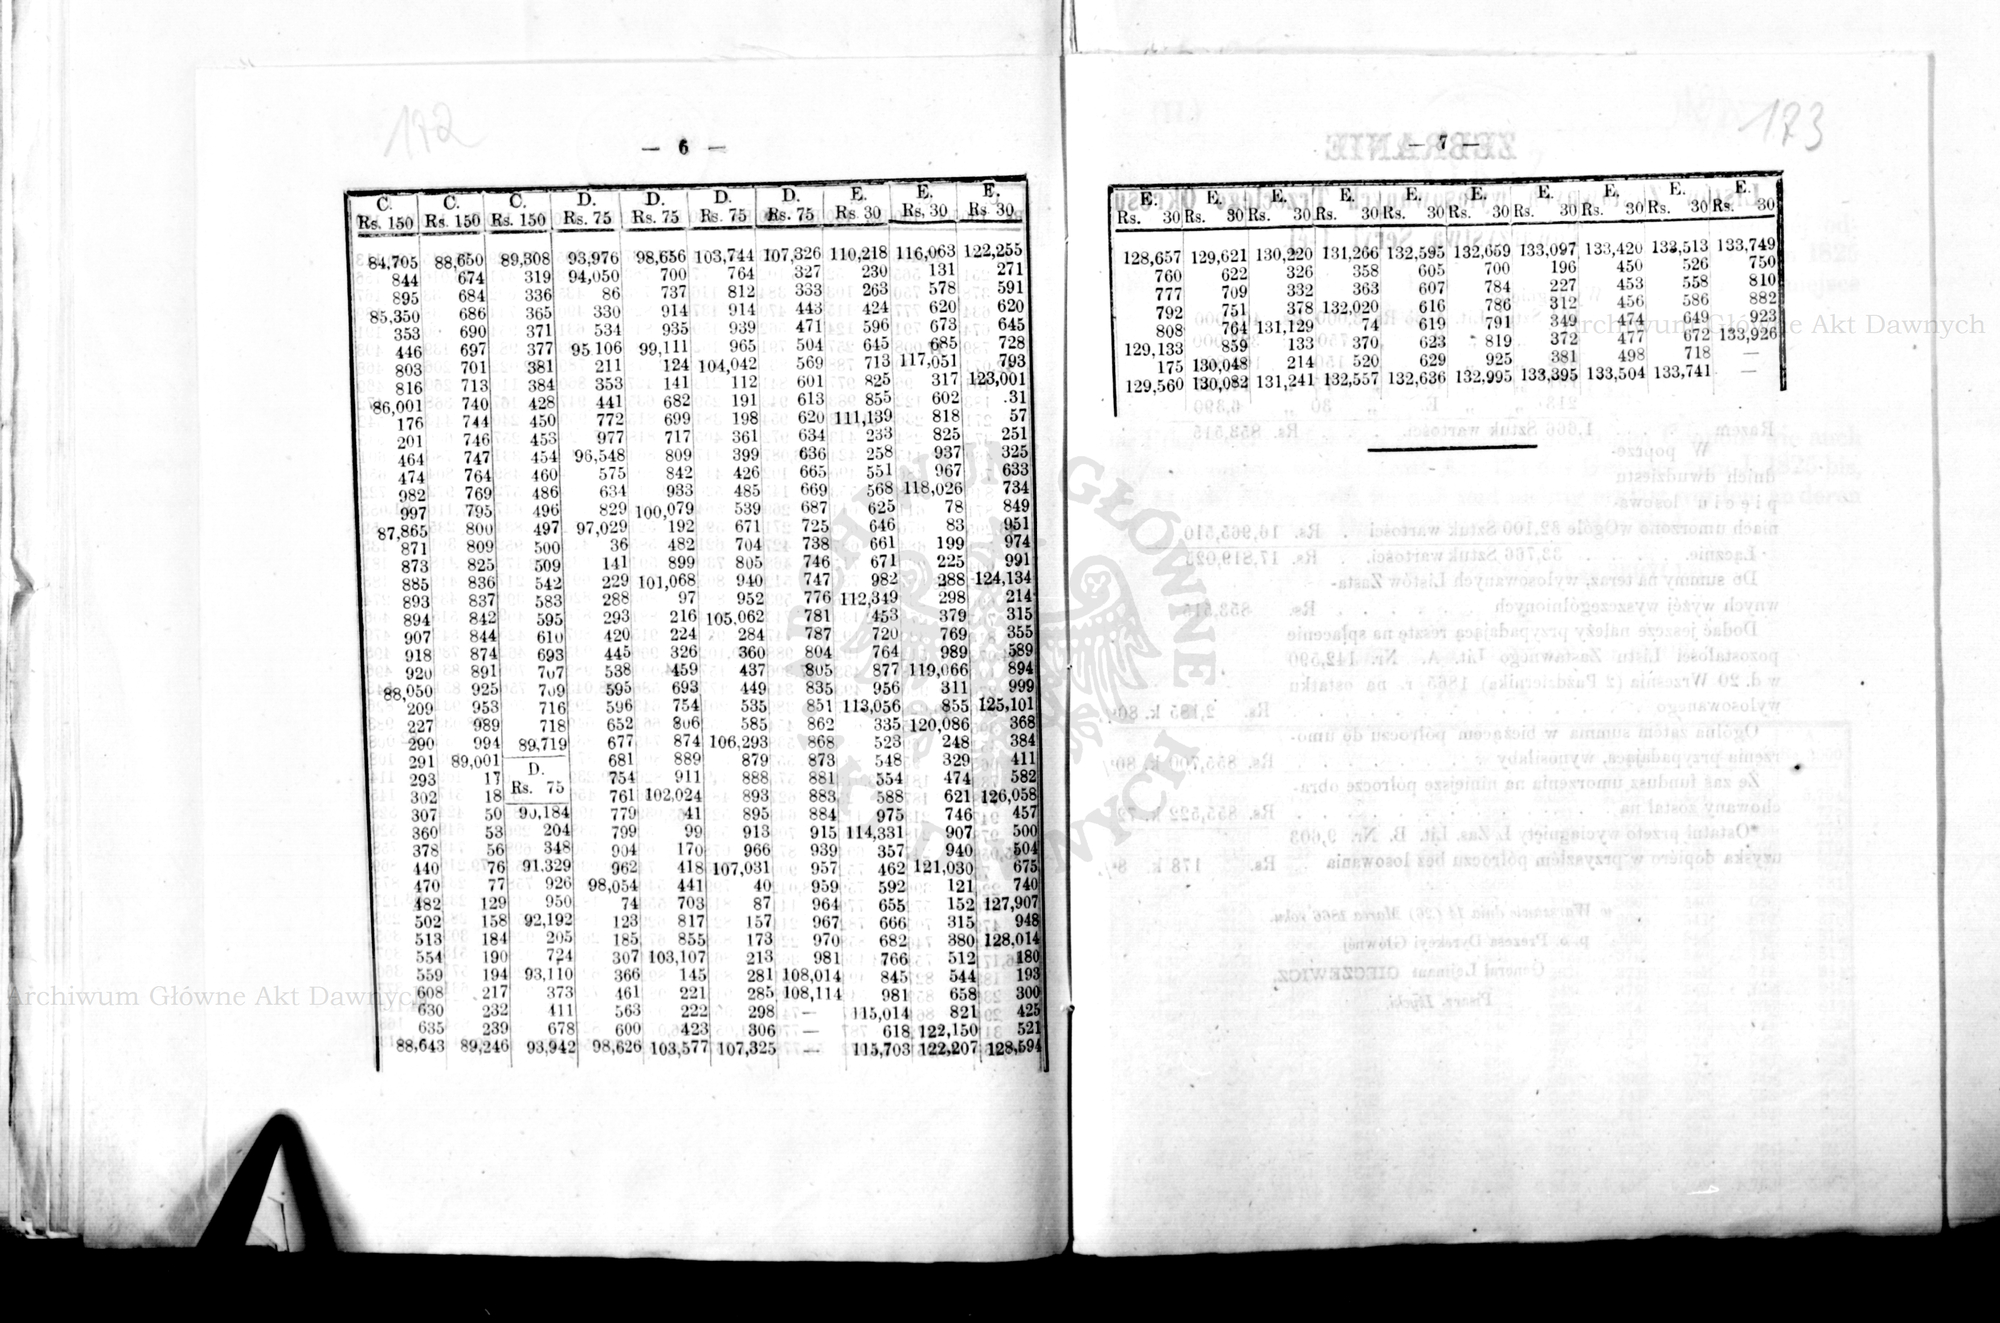 172
— 6 —
C. C. C. D. D. D. D. E. E. E.
Rs. 150 Rs. 150 Rs. 150 Rs. 75 Rs. 75 Rs. 75 Rs. 75 Rs 30 Rs, 30 Rs 30
84,705 88,650 89,308 93,976 98,656 103,744 107,326 110,218 116,063 122,255
844 674 319 94,050 700 764 327 230 131 271
895 684 336 86 737 812 333 263 578 591
85,350 686 365 330 914 914 443 424 620 620
353 690 371 534 935 939 471 596 673 645
446 697 377 95 106 99,111 965 504 645 685 728
803 701 381 211 124 104,042 569 713 117,051 793
816 713 384 353 141 112 601 825 317 123,001
86,001 740 428 441 682 191 613 855 602 .31
176 744 450 772 699 198 620 111,139 818 57
201 746 453 977 717 361 634 233 825 251
464 747 454 96,548 809 399 636 258 937 325
474 764 460 575 842 426 665 551 967 633
982 769 486 634 933 485 669 568 118,026 734
997 795 496 829 100,079 539 687 625 78 849
87,865 800 497 97,029 192 671 725 646 83 951
871 809 500 36 482 704 738 661 199 974
873 825 509 141 899 805 746 671 225 991
885 836 542 229 101,068 940 747 982 288 124,134
893 837 583 288 97 952 776 112,349 298 214
894 842 595 293 216 105,062 781 453 379 315
907 844 610 420 224 284 787 720 769 355
918 874 693 445 326 360 804 764 989 589
920 891 707 538 459 437 805 877 119,066 894
88,050 925 709 595 693 449 835 956 311 999
209 953 716 596 754 535 851 113,056 855 125,101
227 989 718 652 806 585 862 335 120,086 368
290 994 89,719 677 874 106,293 868 523 248 384
291 89,001 D. 681 889 879 873 548 329 411
293 17 Rs. 75 754 911 888 881 554 474 582
302 18 761 102,024 893 883 588 621 126,058
307 50 90,184 779 41 895 884 975 746 457
360 53 204 799 99 913 915 114,331 907 500
378 56 348 904 170 966 939 357 940 504
440 76 91.329 962 418 107,031 957 462 121,030 675
470 77 926 98,054 441 40 959 592 121 740
482 129 950 74 703 87 964 655 152 127,907
502 158 92,192 123 817 157 967 666 315 948
513 184 205 185 855 173 970 682 380 128,014
554 190 724 307 103,107 213 981 766 512 180
559 194 93,110 366 145 281 108,014 845 544 193
608 217 373 461 221 285 108,114 981 658 300
630 232 411 563 222 298 — 115,014 821 425
635 239 678 600 423 306 — 618 122,150 521
88,643 89,246 93,942 98,626 103,577 107,325 — 115,703 122,207 128,594
173
— 7 —
E. E. E. E. E. E. E. E. E. E.
Rs. 30 Rs. 30 Rs. 30 Rs. 30 Rs. 30 Rs. 30 Rs. 30 Rs. 30 Rs. 30 Rs. 30
128,657 129,621 130,220 131,266 132,595 132,659 133,097 133,420 133,513 133,749
760 622 326 358 605 700 196 450 526 750
777 709 332 363 607 784 227 453 558 810
792 751 378 132,020 616 786 312 456 586 882
808 764 131,129 74 619 791 349 474 649 923
129,133 859 133 370 623 819 372 477 672 133,926
175 130,048 214 520 629 925 381 498 718 —
129,560 130,082 131,241 132,557 132,636 132,995 133,395 133,504 133,741 —
Archiwum Główne Akt Dawnych
Archiwum Główne Akt Dawnych
ARCHIWUM GŁÓWNE AKT DAWNYCH